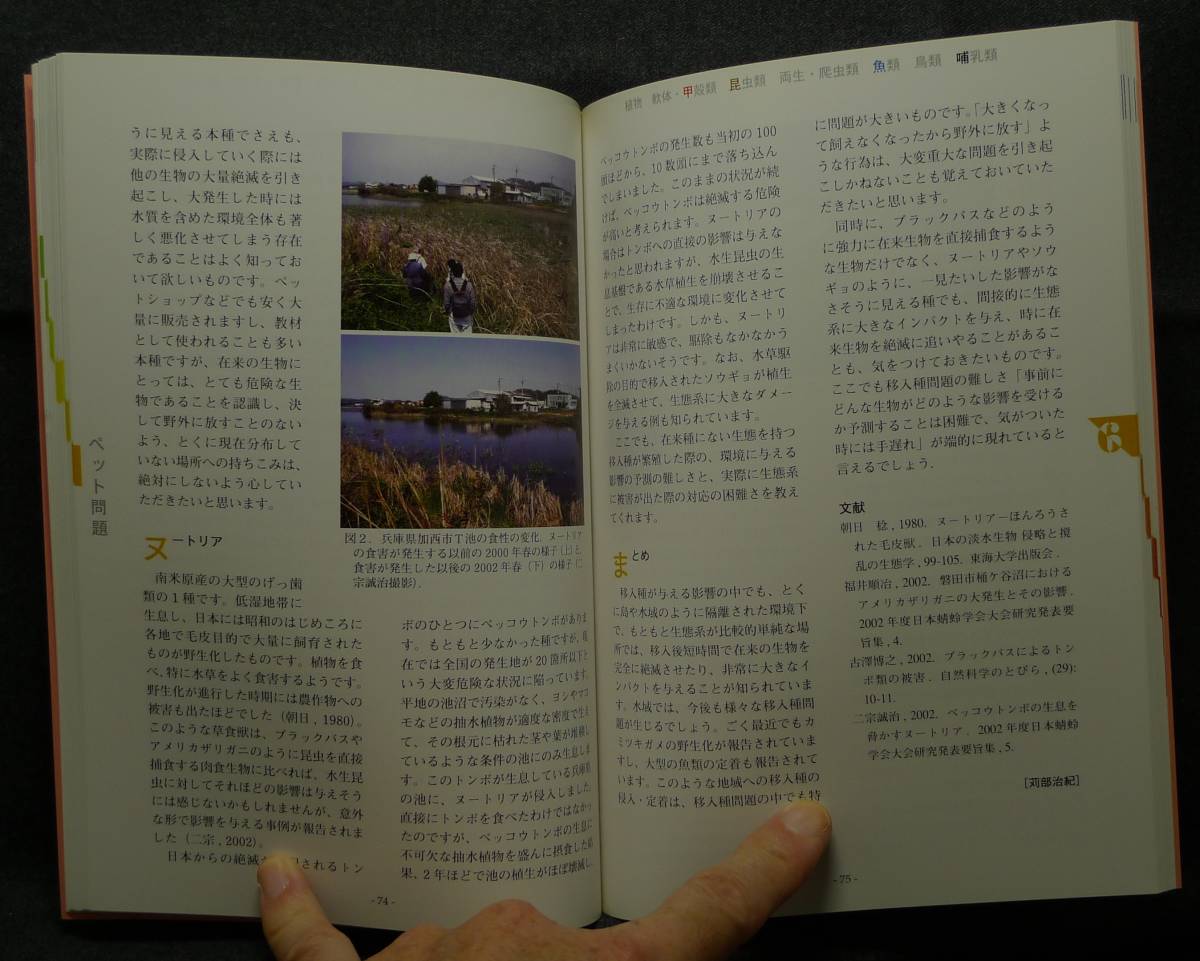 うに見える本種でさえも、
実際に侵入していく際には
他の生物の大量絶滅を引き
起こし、大発生した時には
水質を含めた環境全体も著
しく悪化させてしまう存在
であることはよく知ってお
いて欲しいものです。ペッ
トショップなどでも安く大
量に販売されますし、教材
として使われることも多い
本種ですが、在来の生物に
とっては、とても危険な生
物であることを認識し、決
して野外に放すことのない
よう、とくに現在分布して
いない場所への持ちこみは、
絶対にしないよう心してい
ただきたいと思います。
ペット問題
ヌートリア
南米原産の大型のげっ歯
類の1種です。低湿地帯に
生息し、日本には昭和のはじめころに
各地で毛皮目的で大量に飼育された
ものが野生化したものです。植物を食
べ、特に水草をよく食害するようです。
野生化が進行した時期には農作物への
被害も出たほどでした（朝日, 1980）。
このような草食獣は、ブラックバスや
アメリカザリガニのように昆虫を直接
捕食する肉食生物に比べれば、水生昆
虫に対してそれほどの影響は与えそう
には感じないかもしれませんが、意外
な形で影響を与える事例が報告されま
した（二宗, 2002）。
日本からの絶滅 されるトン
図2．兵庫県加西市T池の食性の変化. ヌートリア
の食害が発生する以前の2000年春の様子（上）と、
食害が発生した以後の2002年春（下）の様子（二
宗誠治撮影）.
ボのひとつにベッコウトンボがありま
す。もともと少なかった種ですが、現
在では全国の発生地が20箇所以下と
いう大変危険な状況に陥っています。
平地の池沼で汚染がなく、ヨシやマコ
モなどの抽水植物が適度な密度で生え
て、その根元に枯れた茎や葉が堆積し
ているような条件の池にのみ生息しま
す。このトンボが生息している兵庫県
の池に、ヌートリアが侵入しました。
直接にトンボを食べたわけではなかっ
たのですが、ベッコウトンボの生息に
不可欠な抽水植物を盛んに摂食した結
果、2年ほどで池の植生がほぼ壊滅し、
- 74 -
植物 軟体・甲殻類 昆虫類 両生・爬虫類 魚類 鳥類 哺乳類
ベッコウトンボの発生数も当初の100
頭ほどから、10数頭にまで落ち込ん
でしまいました。このままの状況が続
けば、ベッコウトンボは絶滅する危険
が高いと考えられます。ヌートリアの
場合はトンボへの直接の影響は与えな
かったと思われますが、水生昆虫の生
息基盤である水草植生を崩壊させるこ
とで、生存に不適な環境に変化させて
しまったわけです。しかも、ヌートリ
アは非常に敏感で、駆除もなかなかう
まくいかないそうです。なお、水草駆
除の目的で移入されたソウギョが植生
を全滅させて、生態系に大きなダメー
ジを与える例も知られています。
ここでも、在来種にない生態を持つ
移入種が繁殖した際の、環境に与える
影響の予測の難しさと、実際に生態系
に被害が出た際の対応の困難さを教え
てくれます。
まとめ
移入種が与える影響の中でも、とく
に島や水域のように隔離された環境下
で、もともと生態系が比較的単純な場
所では、移入後短時間で在来の生物を
完全に絶滅させたり、非常に大きなイ
ンパクトを与えることが知られていま
す。水域では、今後も様々な移入種問
題が生じるでしょう。ごく最近でもカ
ミツキガメの野生化が報告されていま
すし、大型の魚類の定着も報告されて
います。このような地域への移入種の
侵入・定着は、移入種問題の中でも特
に問題が大きいものです。「大きくなっ
て飼えなくなったから野外に放す」よ
うな行為は、大変重大な問題を引き起
こしかねないことも覚えておいていた
だきたいと思います。
同時に、ブラックバスなどのよう
に強力に在来生物を直接捕食するよう
な生物だけでなく、ヌートリアやソウ
ギョのように、一見たいした影響がな
さそうに見える種でも、間接的に生態
系に大きなインパクトを与え、時に在
来生物を絶滅に追いやることがあるこ
とも、気をつけておきたいものです。
ここでも移入種問題の難しさ「事前に
どんな生物がどのような影響を受ける
か予測することは困難で、気がついた
時には手遅れ」が端的に現れていると
言えるでしょう.
6
文献
朝日 稔, 1980. ヌートリアーほんろうさ
れた毛皮獣. 日本の淡水生物 侵略と撹
乱の生態学, 99-105. 東海大学出版会.
福井順治, 2002. 磐田市桶ケ谷沼における
アメリカザリガニの大発生とその影響.
2002年度日本蜻蛉学会大会研究発表要
旨集, 4.
古澤博之, 2002. ブラックバスによるトン
ボ類の被害. 自然科学のとびら, (29):
10-11.
二宗誠治, 2002. ベッコウトンボの生息を
脅かすヌートリア. 2002年度日本蜻蛉
学会大会研究発表要旨集, 5.
[苅部治紀]
- 75 -